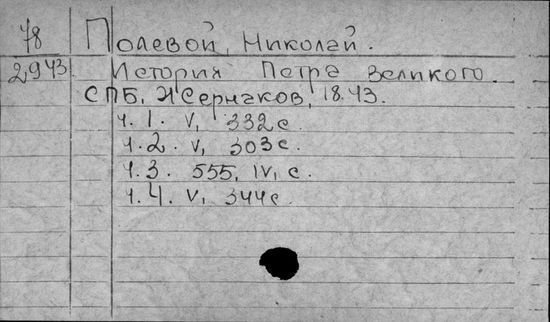 78 Полевой, Николай.
2943. История Петра Великого.
СПБ, Жернаков, 1843.
ч. 1. V, 332 с.
ч. 2. V, 303 с.
ч. 3. 555, IV, с.
ч. 4. V, 344 с.